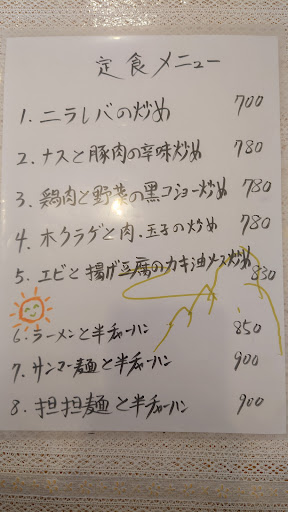 定食メニュー
1. ニラレバの炒め 700
2. ナスと豚肉の辛味炒め 780
3. 鶏肉と野菜の黒コショー炒め 780
4. 木クラゲと肉.玉子の炒め 780
5. エビと揚げ豆腐のカキ油ソース炒め 830
6. ラーメンと半チャーハン 850
7. サンマー麺と半チャーハン 900
8. 担担麺と半チャーハン 900